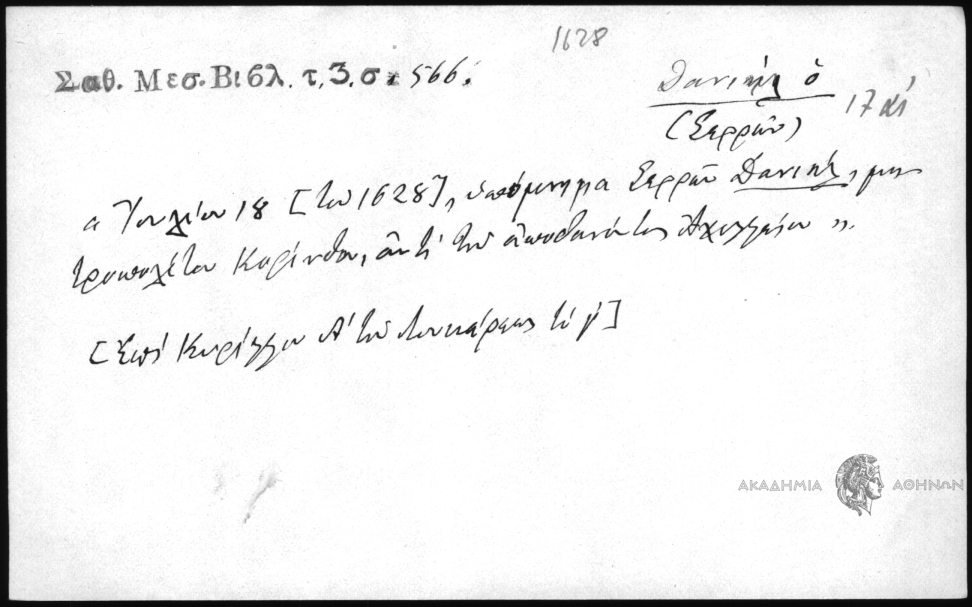 1628
Σαθ. Μεσ. Βιβλ. τ. 3. σ. 566.
Δανιήλ ὁ
(Σερρῶν)
17 αἰ
« Ἰουλίου 18 [τοῦ 1628], ὑπόμνημα Σερρῶν Δανιήλ, μη-
τροπολίτου Κορίνθου, ἀντὶ τοῦ ἀποθανόντος ».
[Ἐπὶ Κυρίλλου Α´ τοῦ Λουκάρεως τὸ γ´]
ΑΚΑΔΗΜΙΑ ΑΘΗΝΩΝ